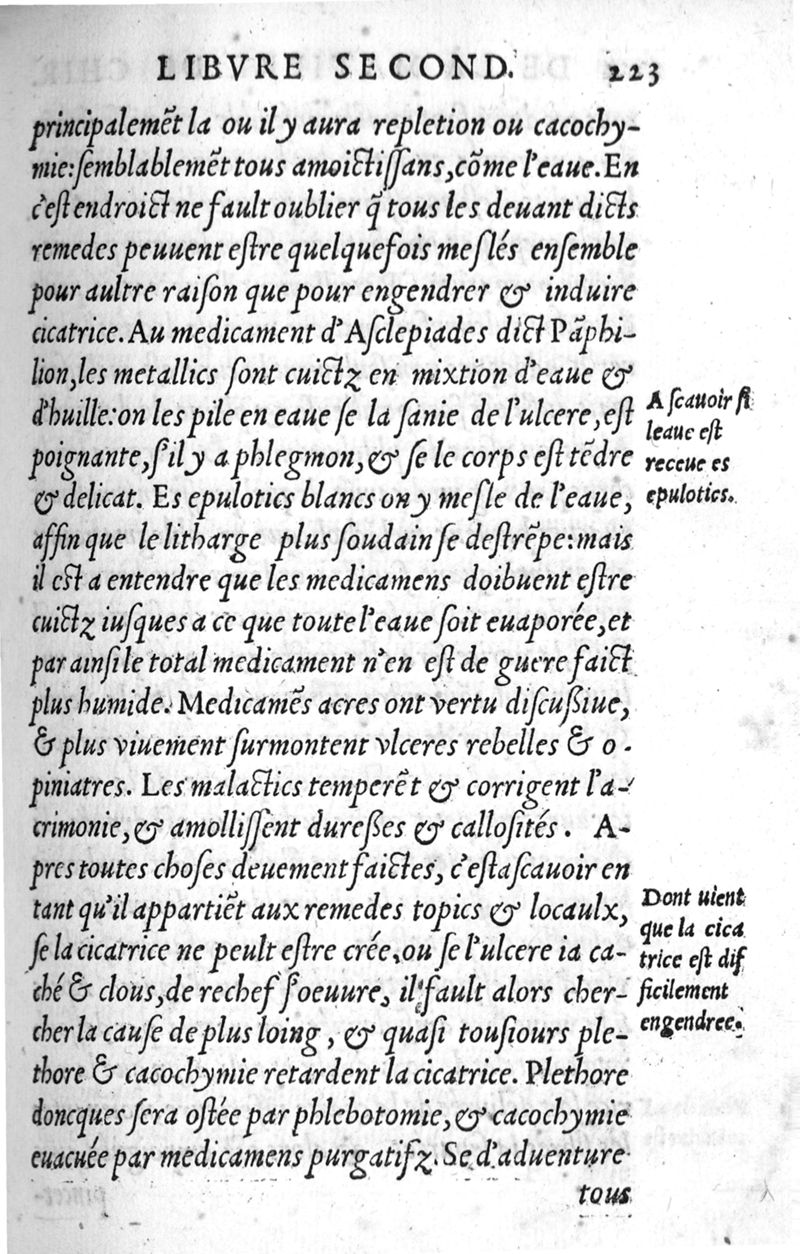 LIBVRE SECOND. 223
principalemēt la ou il y aura repletion ou cacochy-
mie:ſemblablemēt tous amoictiſſans,cōme l'eaue. En
c'eſt endroict ne fault oublier q̃ tous les deuant dicts
remedes peuuent eſtre quelquefois meſlés enſemble
pour aultre raiſon que pour engendrer & induire
cicatrice. Au medicament d'Aſclepiades dict Pāphi-
lion,les metallics ſont cuictz en mixtion d'eaue &
d'huille:on les pile en eaue ſe la ſanie de l'ulcere, eſt
poignante, ſ'il y a phlegmon, & ſe le corps eſt tēdre
& delicat. Es epulotics blancs on y meſle de l'eaue,
affin que le litharge plus ſoudain ſe deſtrēpe:mais
il eſt a entendre que les medicamens doibuent eſtre
cuictz iuſques a ce que toute l'eaue ſoit euaporée, et
par ainſi le total medicament n'en eſt de guere faict
plus humide. Medicamēs acres ont vertu diſcuſſiue,
& plus viuement ſurmontent vlceres rebelles & o-
piniatres. Les malactics temperēt & corrigent l'a-
crimonie, & amolliſſent dureſſes & calloſités. A-
pres toutes choſes deuement faictes, c'eſt aſcauoir en
tant qu'il appartiēt aux remedes topics & locaulx,
ſe la cicatrice ne peult eſtre crée, ou ſe l'ulcere ia ca-
ché & clous, de rechef ſ'oeuure, il fault alors cher-
cher la cauſe de plus loing, & quaſi touſiours ple-
thore & cacochymie retardent la cicatrice. Plethore
doncques ſera oſtée par phlebotomie, & cacochymie
euacuée par medicamens purgatifz. Se d'aduenture
tous
Aſcauoir ſi
leaue eſt
receue es
epulotics.
Dont uient
que la cica
trice eſt dif
ficilement
engendree.